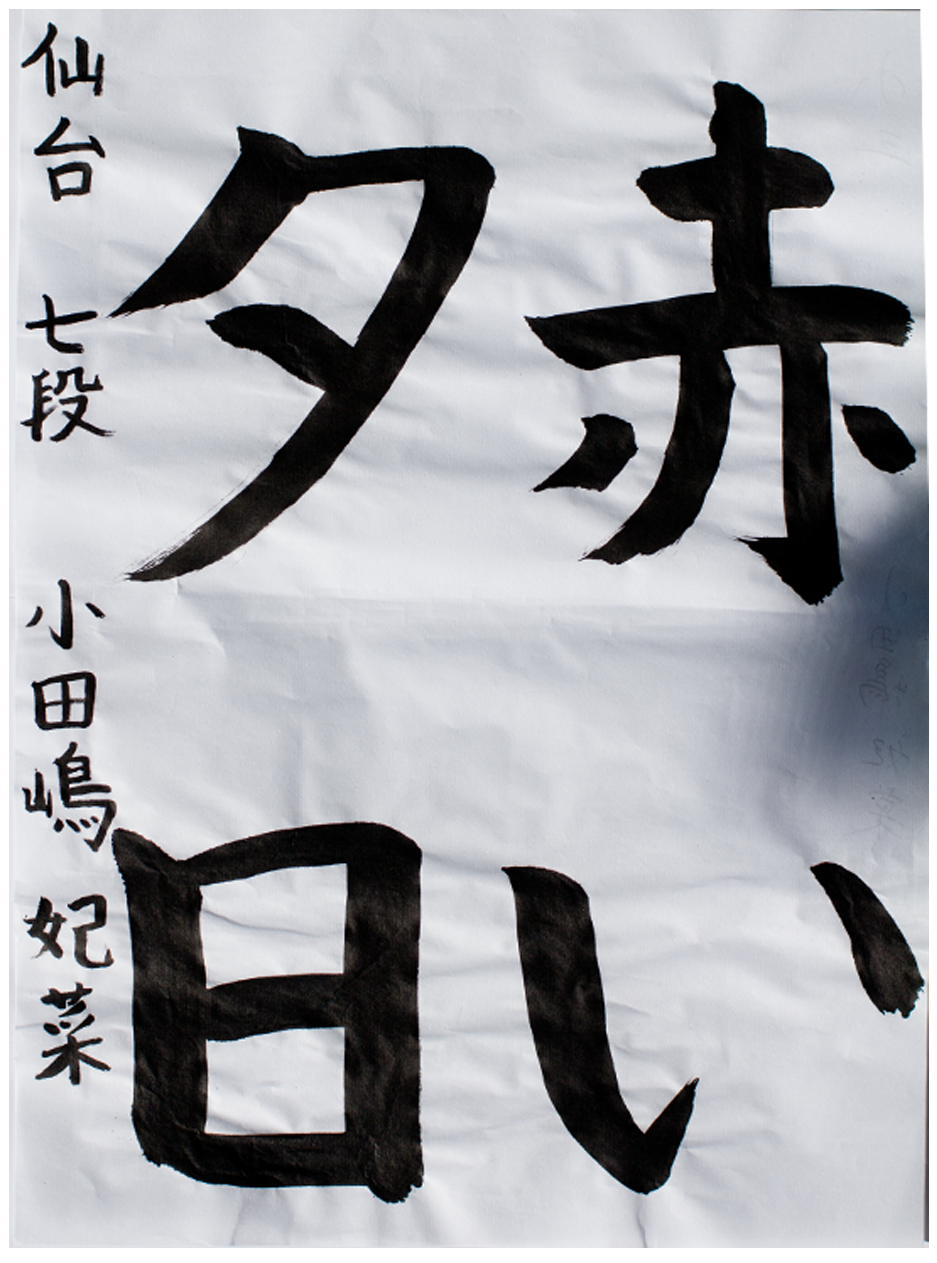 赤い
夕日
仙台 七段 小田嶋 妃菜